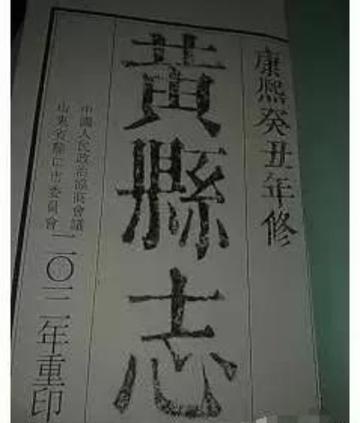 康熙癸丑年修
黃縣志
中國人民政治協商會議
山東省龍口市委員會
二〇一二年重印